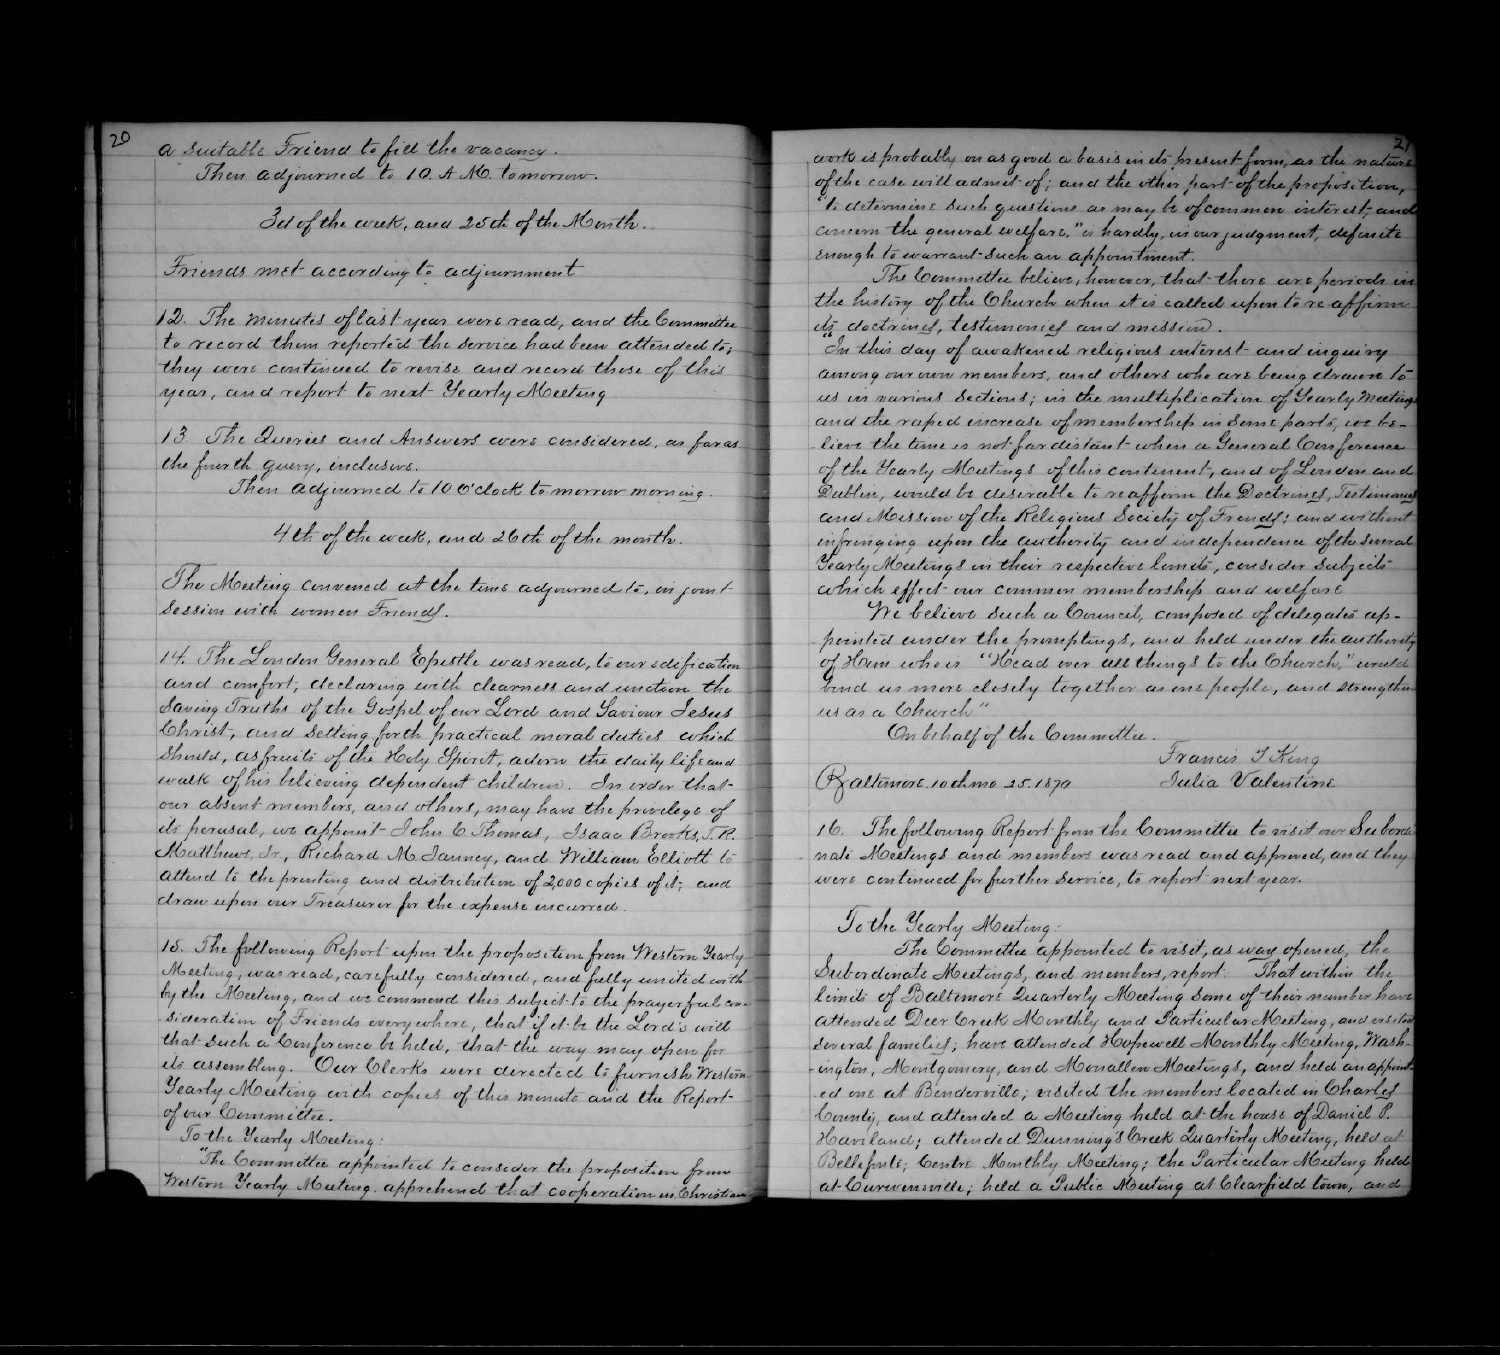 20
a suitable Friend to fill the vacancy.
Then adjourned to 10. A M. tomorrow.
3d of the week, and 25th of the Month.
Friends met according to adjournment
12. The minutes of last year were read, and the Committee
to record them reported the service had been attended to;
they were continued to revise and record those of this
year, and report to next Yearly Meeting
13 The Queries and Answers were considered, as far as
the fourth query, inclusive.
Then adjourned to 10 O'clock to morrow morning.
4th of the week, and 26th of the month.
The Meeting convened at the time adjourned to, in joint
session with women Friends.
14. The London General Epistle was read, to our edification
and comfort; declaring with clearness and unction the
Saving Truths of the Gospel of our Lord and Saviour Jesus
Christ, and setting forth practical moral duties which
should, as fruits of the Holy Spirit, adorn the daily life and
walk of his believing dependent children. In order that
our absent members, and others, may have the privilege of
its perusal, we appoint John C Thomas, Isaac Brooks, T. R.
Matthews, Jr., Richard M. Janney, and William Elliott to
attend to the printing and distribution of 2,000 copies of it; and
draw upon our Treasurer for the expense incurred.
15. The following Report upon the proposition from Western Yearly
Meeting, was read, carefully considered, and fully united with
by the Meeting, and we commend this subject to the prayerful con-
sideration of Friends everywhere, that if it be the Lord's will
that such a Conference be held, that the way may open for
its assembling. Our Clerks were directed to furnish Western
Yearly Meeting with copies of this minute and the Report
of our Committee.
To the Yearly Meeting:
"The Committee appointed to consider the proposition from
Western Yearly Meeting. apprehend that cooperation in Christian
21
work is probably on as good a basis in its present form, as the nature
of the case will admit of; and the other part of the proposition,
"to determine such questions as may be of common interest, and
concern the general welfare," is hardly, in our judgment, definite
enough to warrant such an appointment.
The Committee believe, however, that there are periods in
the history of the Church when it is called upon to re-affirm
its doctrines, testimonies and mission.
"In this day of awakened religious interest and inquiry
among our own members, and others who are being drawn to
us in various sections; in the multiplication of Yearly Meetings
and the raped increase of membership in some parts, we be-
lieve the time is not far distant when a General Conference
of the Yearly Meetings of this continent, and of London and
Dublin, would be desireable to reaffirm the Doctrines, Testimonies
and Mission of the Religious Society of Friends; and without
infringing upon the authority and independence of the several
Yearly Meetings in their respective limits, consider subjects
which effect our common membership and welfare
We believe such a Council, composed of delegates ap-
pointed under the promptings, and held under the authority
of Him who is "Head over all things to the Church," would
bind us more closely together as one people, and strengthen
us as a Church"
On behalf of the Committee.
Francis T King
Baltimore. 10th mo 25. 1870 Julia Valentine
16. The following Report from the Committee to visit our Subordi-
nate Meetings and members was read and approved, and they
were continued for further service, to report next year.
To the Yearly Meeting:
The Committee appointed to visit, as way opened, the
Subordinate Meetings, and members, report: That within the
limits of Baltimore Quarterly Meeting some of their number have
attended Deer Creek Monthly and Particular Meeting, and visited
several families; have attended Hopewell Monthly Meeting, Wash-
ington, Montgomery, and Monallen Meetings, and held an appoint-
ed one at Benderville; visited the members located in Charles
County, and attended a Meeting held at the house of Daniel P.
Haviland; attended Dunning's Creek Quarterly Meeting, held at
Bellefonte; Centre Monthly Meeting; the Particular Meeting held
at Curwensville; held a Public Meeting at Clearfield town, and